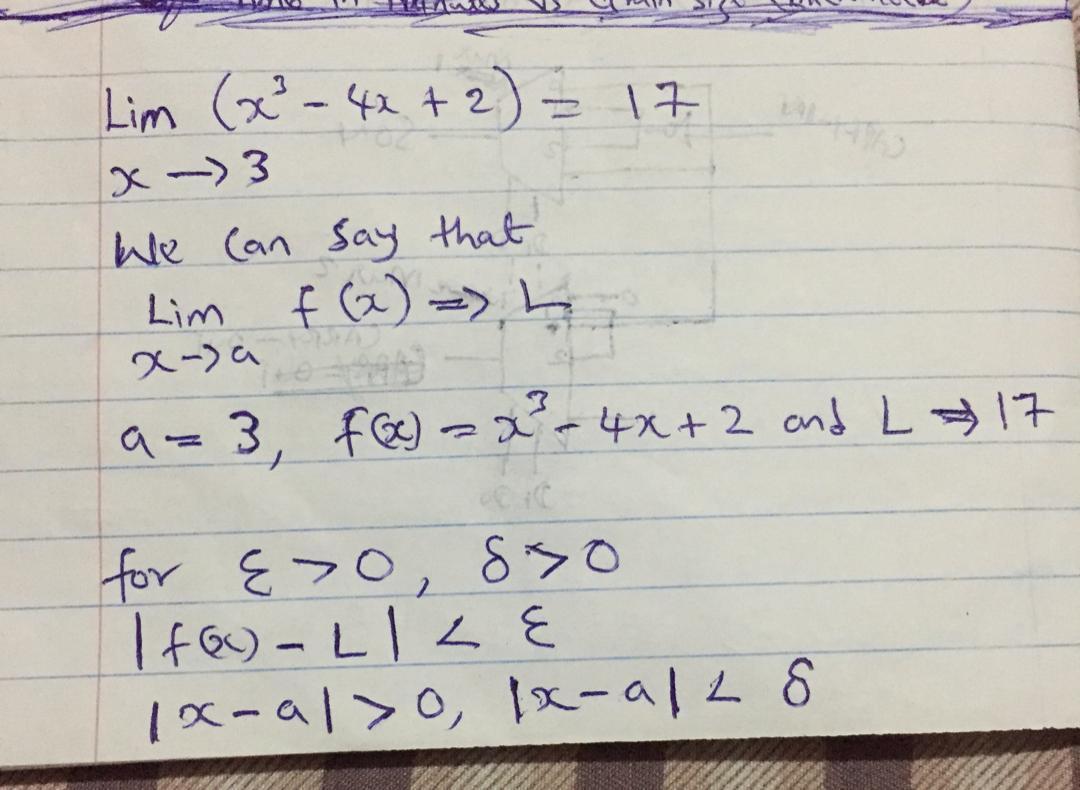 Lim (x³ - 4x + 2) = 17
x → 3
We can say that
Lim f(x) => L
x→a
a = 3, f(x) = x³ - 4x + 2 and L => 17
for ε > 0, δ > 0
|f(x) - L| < ε
|x - a| > 0, |x - a| < δ